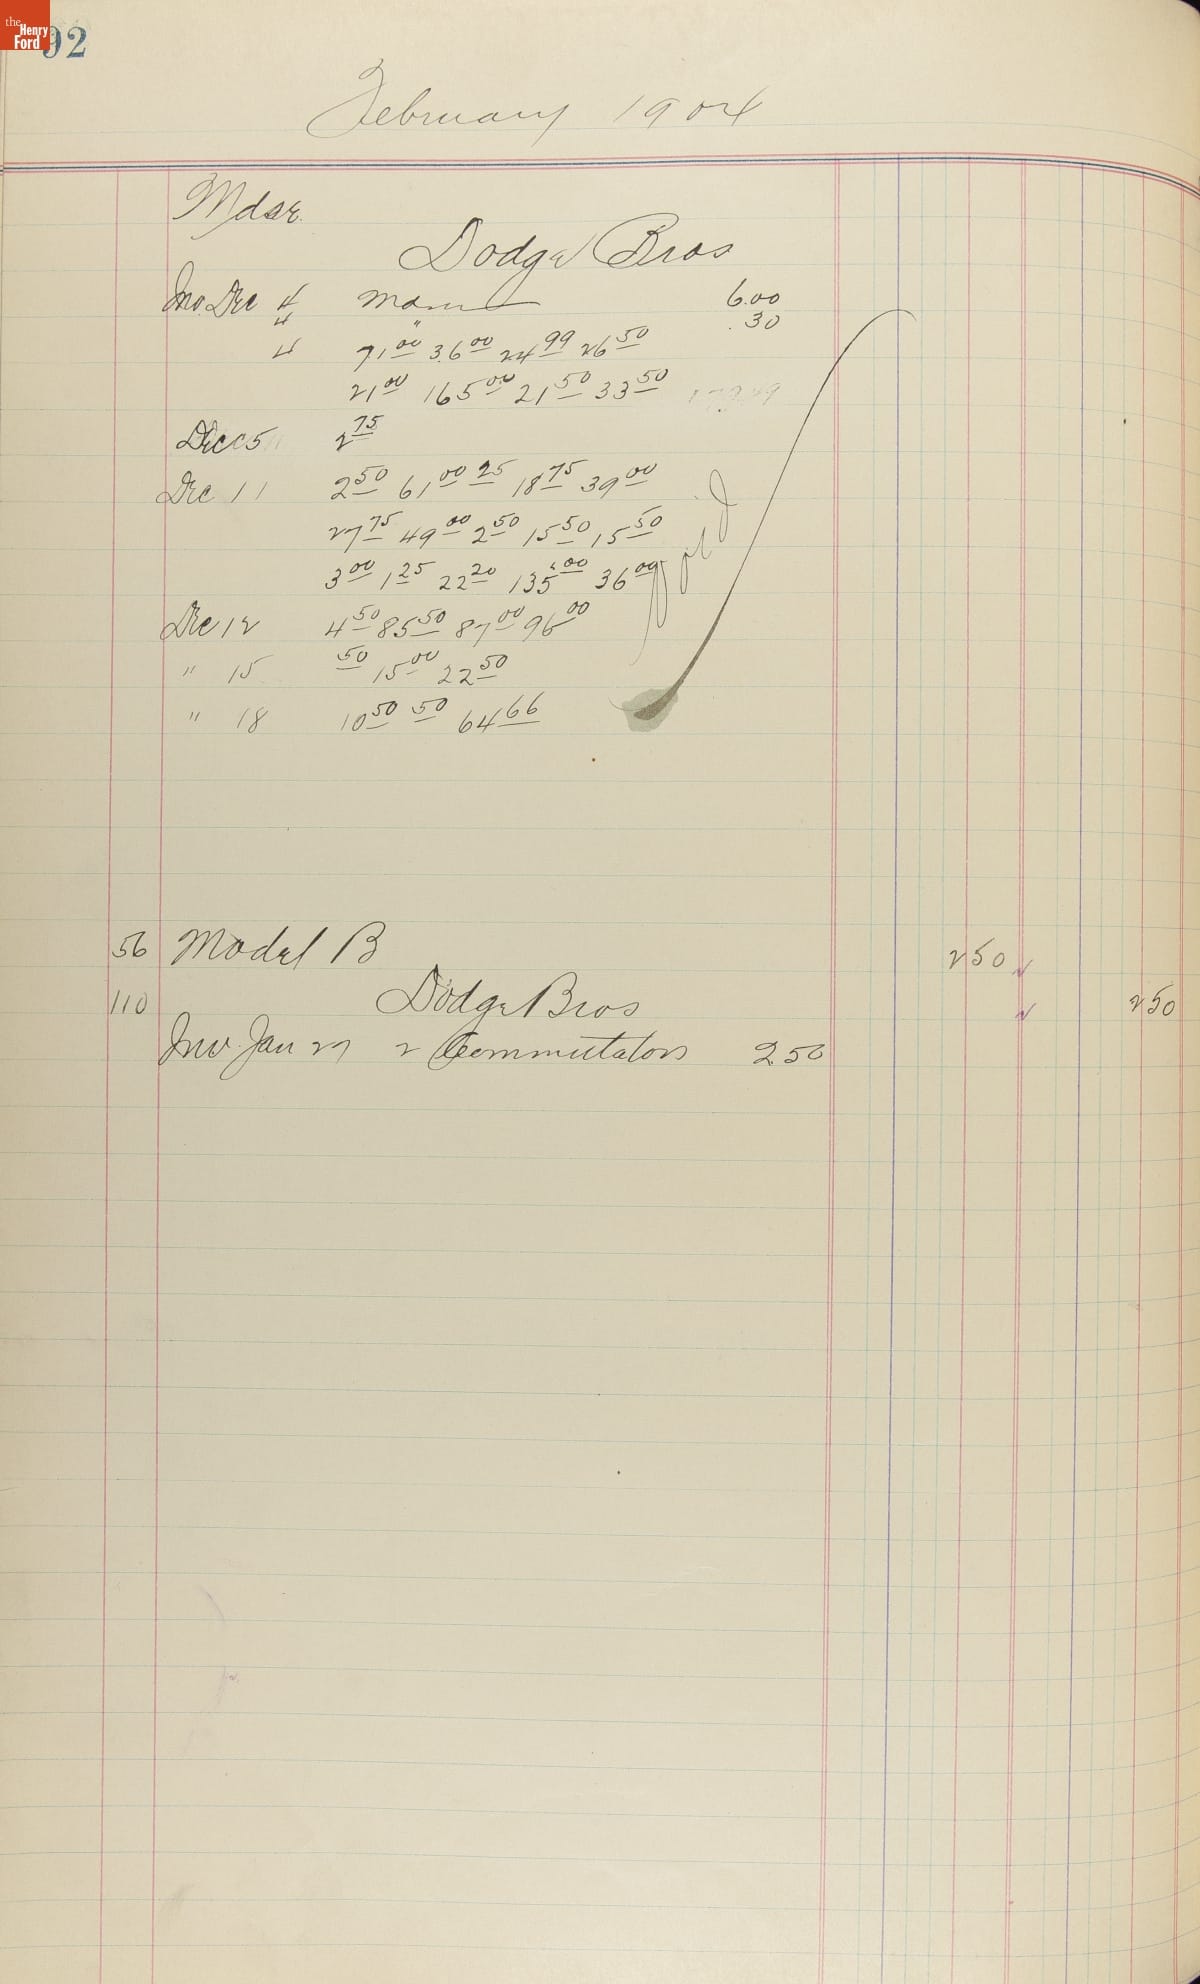 the Henry Ford
92
February 1904
Mdse.
Dodge Bros
Inv. Dec 4 Mdse 6.00
4 " .30
4 71 00 36 00 24 99 26 50
21 00 165 00 21 50 33 50
Dec 5 2 75
Dec 11 2 50 61 00 25 18 75 39 00
27 75 49 00 2 50 15 50 15 50
3 00 1 25 22 20 135 00 36 00
Dec 12 4 50 85 50 87 00 96 00
" 15 50 15 00 22 50
" 18 10 50 50 64 66
56 Model B 2 50
110 Dodge Bros 2 50
Inv. Jan 27 2 Commutators 2 50